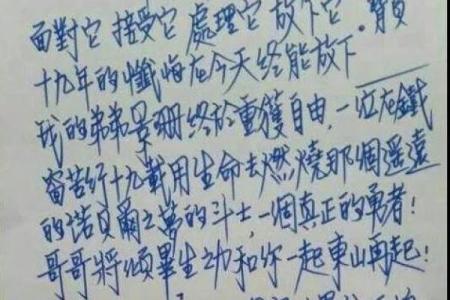 面對它 接受它 處理它 放下它. 背負
十九年的懺悔在今天終能放下
我的弟弟景珊終於重獲自由, 一位在鐵
窑苦行十九載用生命去燃燒那個遥遠
的諾貝爾之夢的斗士, 一個真正的勇者!
哥哥將傾畢生之力和你一起東山再起!